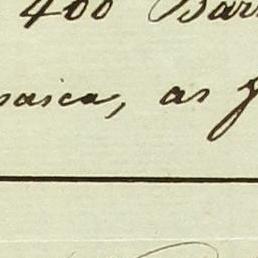 400 Bar
maica, as